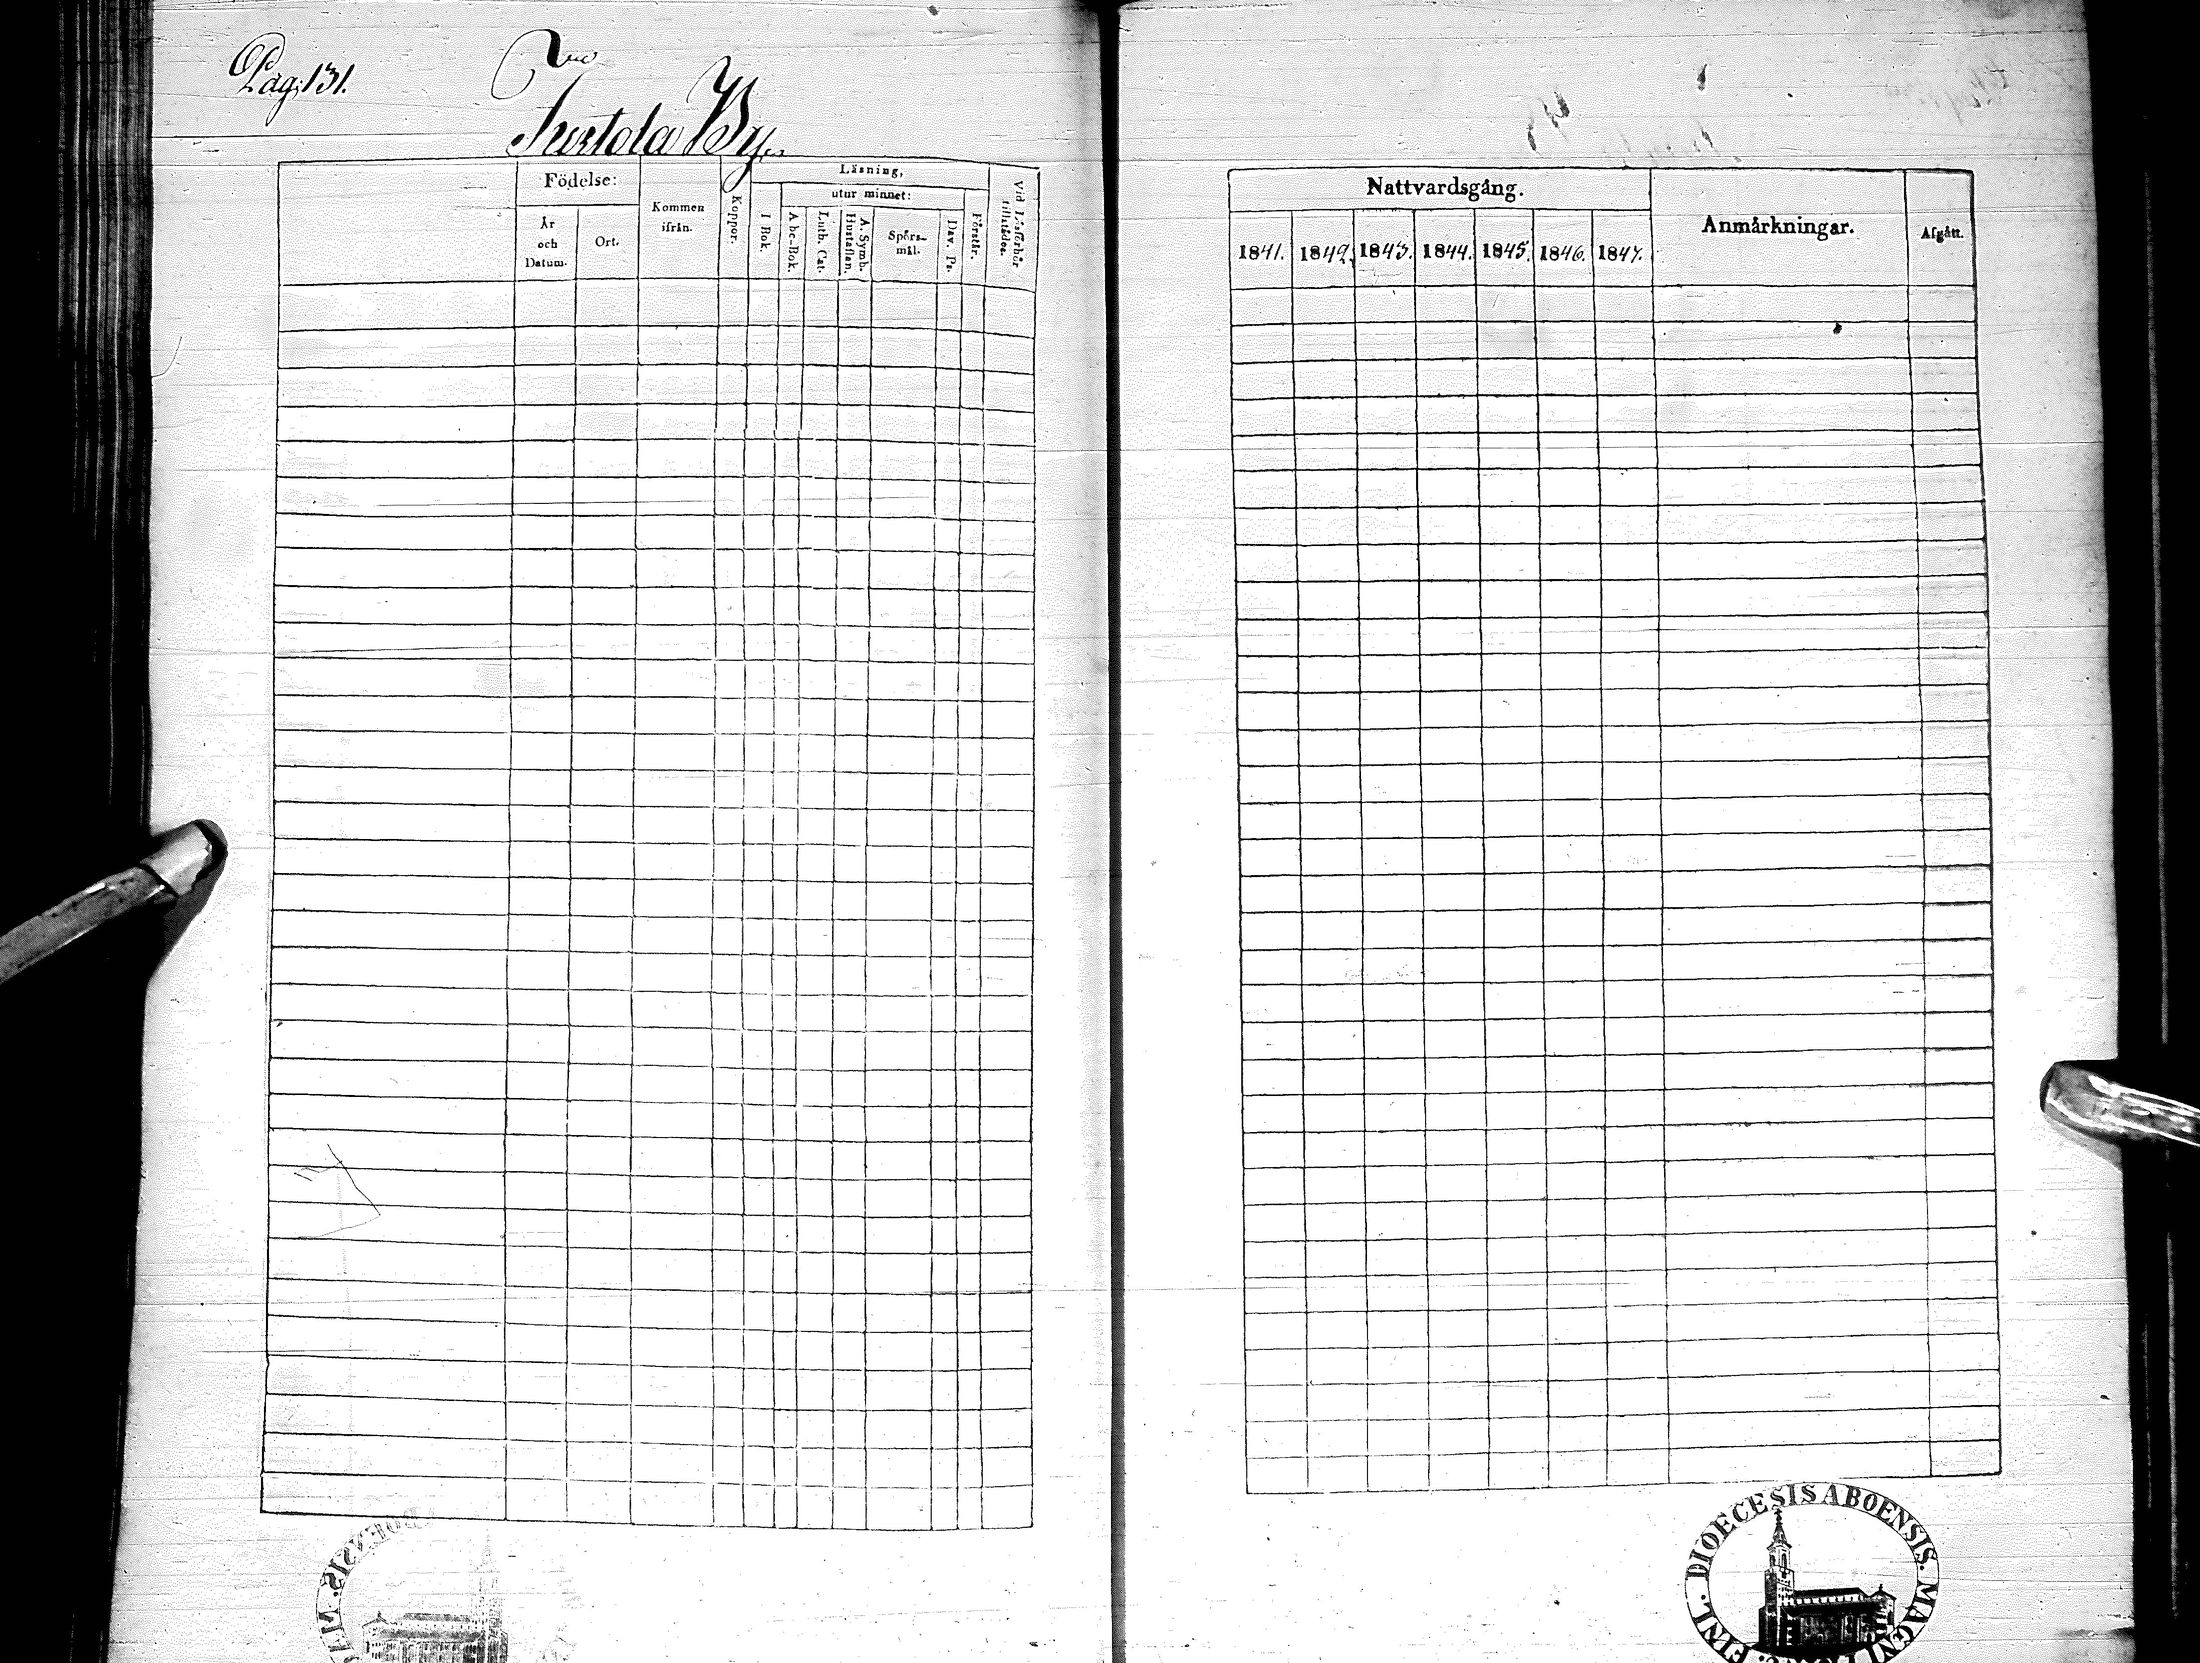 Pag. 131.
Turtola By
Födelse:
År
och
Datum.
Ort.
Kommen
ifrån.
Koppor.
Läsning,
utur minnet:
I Bok.
Abc-Bok.
Luth. Cat.
A. Symb.
Hustaflan.
Spörs-
mål.
Dav. Ps.
Förstår.
Vid Läsförhör
tillstädes.
Nattvardsgång.
1841.
1842.
1843.
1844.
1845.
1846.
1847.
Anmärkningar.
Afgått.
DIOECESIS ABOENSIS. MAGNI
FINL.